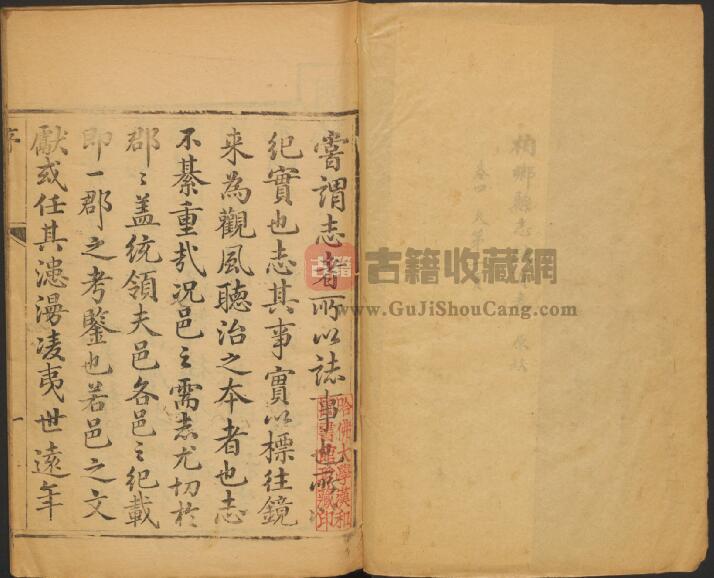 嘗謂志者所以誌事也所以
紀實也志其事實以標往鏡
来為觀風聽治之本者也志
不綦重㢤况邑之需志尤切於
郡〻盖統領夫邑各邑之纪載
即一郡之考鑒也若邑之文
獻或任其漶漫凌夷世遠年
序
一
哈佛大學漢和
圖書館珍藏印
柏鄉縣志
卷四
古籍
古籍收藏網
www.GuJiShouCang.com